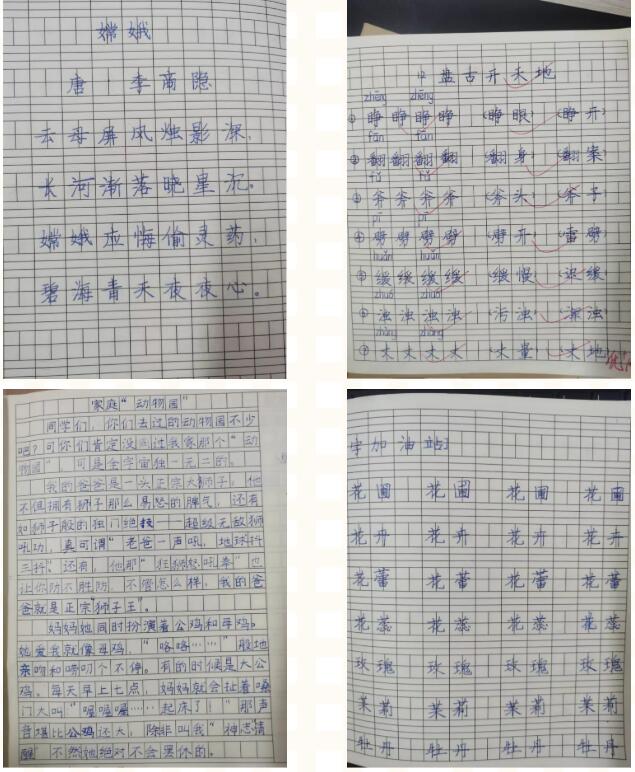 嫦娥
唐 李商隐
云母屏风烛影深,
长河渐落晓星沉。
嫦娥应悔偷灵药,
碧海青天夜夜心。
12 盘古开天地
zhēng zhēng
① 睁 睁 睁 睁 (睁眼) (睁开)
fān fān
② 翻 翻 翻 翻 (翻身) (翻案)
fǔ fǔ
③ 斧 斧 斧 斧 (斧头) (斧子)
pī pī
④ 劈 劈 劈 劈 (劈开) (雷劈)
huǎn huǎn
⑤ 缓 缓 缓 缓 (缓慢) (迟缓)
zhuó zhuó
⑥ 浊 浊 浊 浊 (污浊) (浑浊)
zhàng zhàng
⑦ 丈 丈 丈 丈 (丈量) (丈地)
优
家庭“动物园”
同学们,你们去过的动物园不少
吧?可你们肯定没回过我家那个“动
物园”,可是全宇宙独一无二的。
我的爸爸是一头正宗大狮子,他
不但拥有狮子那么易怒的脾气,还有
如狮子般的独门绝技——超级无敌狮
吼功,真可谓“老爸一声吼,地球抖
三抖”。还有,他那“狂狮怒吼拳”也
让你防不胜防。不管怎么样,我的爸
爸就是正宗“狮子王”。
妈妈她同时扮演着公鸡和母鸡。
她爱我就像母鸡,“咯咯……”般地
亲吻和唠叨个不停。有的时候是大公
鸡。每天早上七点,妈妈就会扯着嗓
门大叫“喔喔喔……起床了!”那声
音堪比公鸡还大,除非叫我“神志清
醒”不然她绝对不会罢休的。
字加油站
花圃 花圃 花圃 花圃
花卉 花卉 花卉 花卉
花蕾 花蕾 花蕾 花蕾
花蕊 花蕊 花蕊 花蕊
玫瑰 玫瑰 玫瑰 玫瑰
茉莉 茉莉 茉莉 茉莉
牡丹 牡丹 牡丹 牡丹